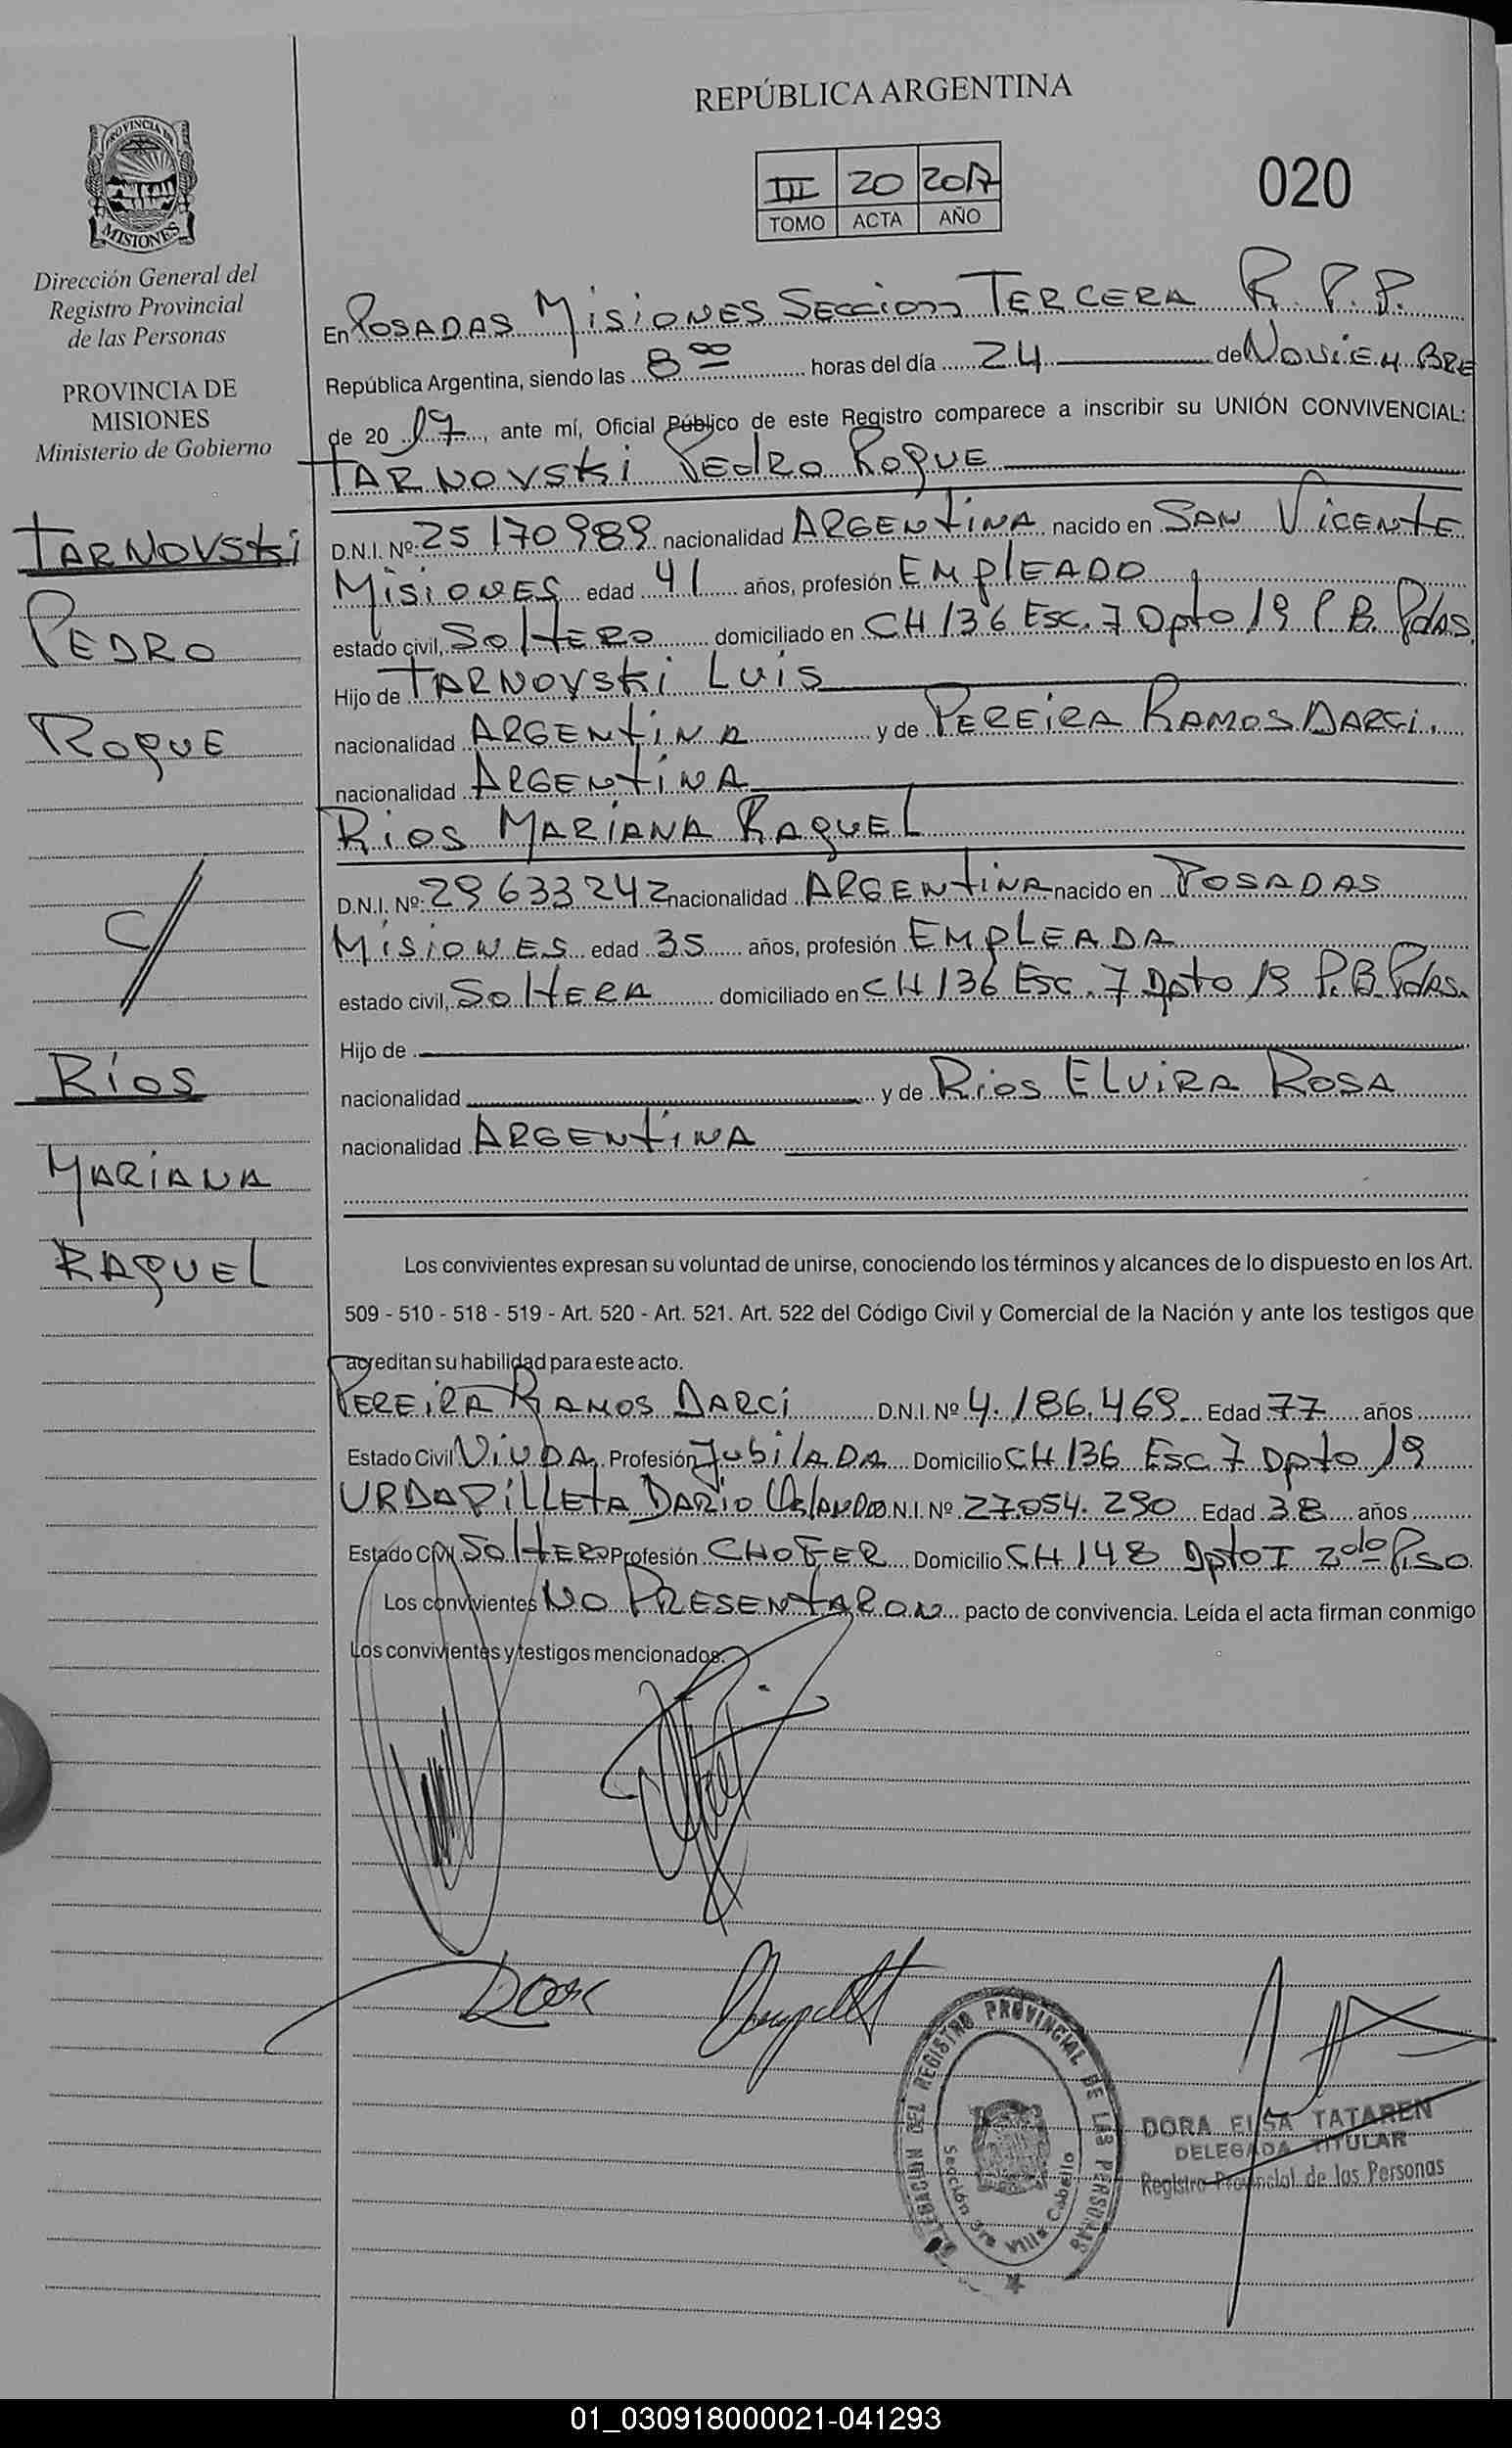 REPÚBLICA ARGENTINA
III 20 2017
TOMO ACTA AÑO
020
PROVINCIA DE
MISIONES
Dirección General del
Registro Provincial
de las Personas
PROVINCIA DE
MISIONES
Ministerio de Gobierno
TARNOVSKI
PEDRO
ROQUE
C/
RÍOS
MARIANA
RAQUEL
En POSADAS MISIONES SECCION TERCERA R.P.P.
República Argentina, siendo las 8 00 horas del día 24 de NOVIEMBRE
de 20 17, ante mí, Oficial Público de este Registro comparece a inscribir su UNIÓN CONVIVENCIAL:
TARNOVSKI PEDRO ROQUE
D.N.I. Nº: 25 170 989 nacionalidad ARGENTINA nacido en SAN VICENTE
MISIONES edad 41 años, profesión EMPLEADO
estado civil, SOLTERO domiciliado en CH 136 ESC. 7 Dpto 19 P B. Pdas.
Hijo de TARNOVSKI LUIS
nacionalidad ARGENTINA y de PEREIRA RAMOS DARCI.
nacionalidad ARGENTINA
RIOS MARIANA RAQUEL
D.N.I. Nº: 29 633 242 nacionalidad ARGENTINA nacido en POSADAS
MISIONES edad 35 años, profesión EMPLEADA
estado civil, SOLTERA domiciliado en CH 136 ESC. 7 Dpto 19 P.B. Pdas.
Hijo de
nacionalidad y de RIOS ELVIRA ROSA
nacionalidad ARGENTINA
Los convivientes expresan su voluntad de unirse, conociendo los términos y alcances de lo dispuesto en los Art.
509 - 510 - 518 - 519 - Art. 520 - Art. 521. Art. 522 del Código Civil y Comercial de la Nación y ante los testigos que
acreditan su habilidad para este acto.
PEREIRA RAMOS DARCI D.N.I. Nº 4.186.469 Edad 77 años
Estado Civil VIUDA Profesión JUBILADA Domicilio CH 136 ESC 7 Dpto 19
URDAPILLETA DARIO ORLANDO D.N.I. Nº 27.054.290 Edad 38 años
Estado Civil SOLTERO Profesión CHOFER Domicilio CH 148 Dpto I 2do PISO
Los convivientes NO PRESENTARON pacto de convivencia. Leída el acta firman conmigo
Los convivientes y testigos mencionados.
DELEGACION DEL REGISTRO PROVINCIAL DE LAS PERSONAS
Sección 3ra Villa Cabello
DORA ELSA TATAREN
DELEGADA TITULAR
Registro Provincial de las Personas
01_030918000021-041293